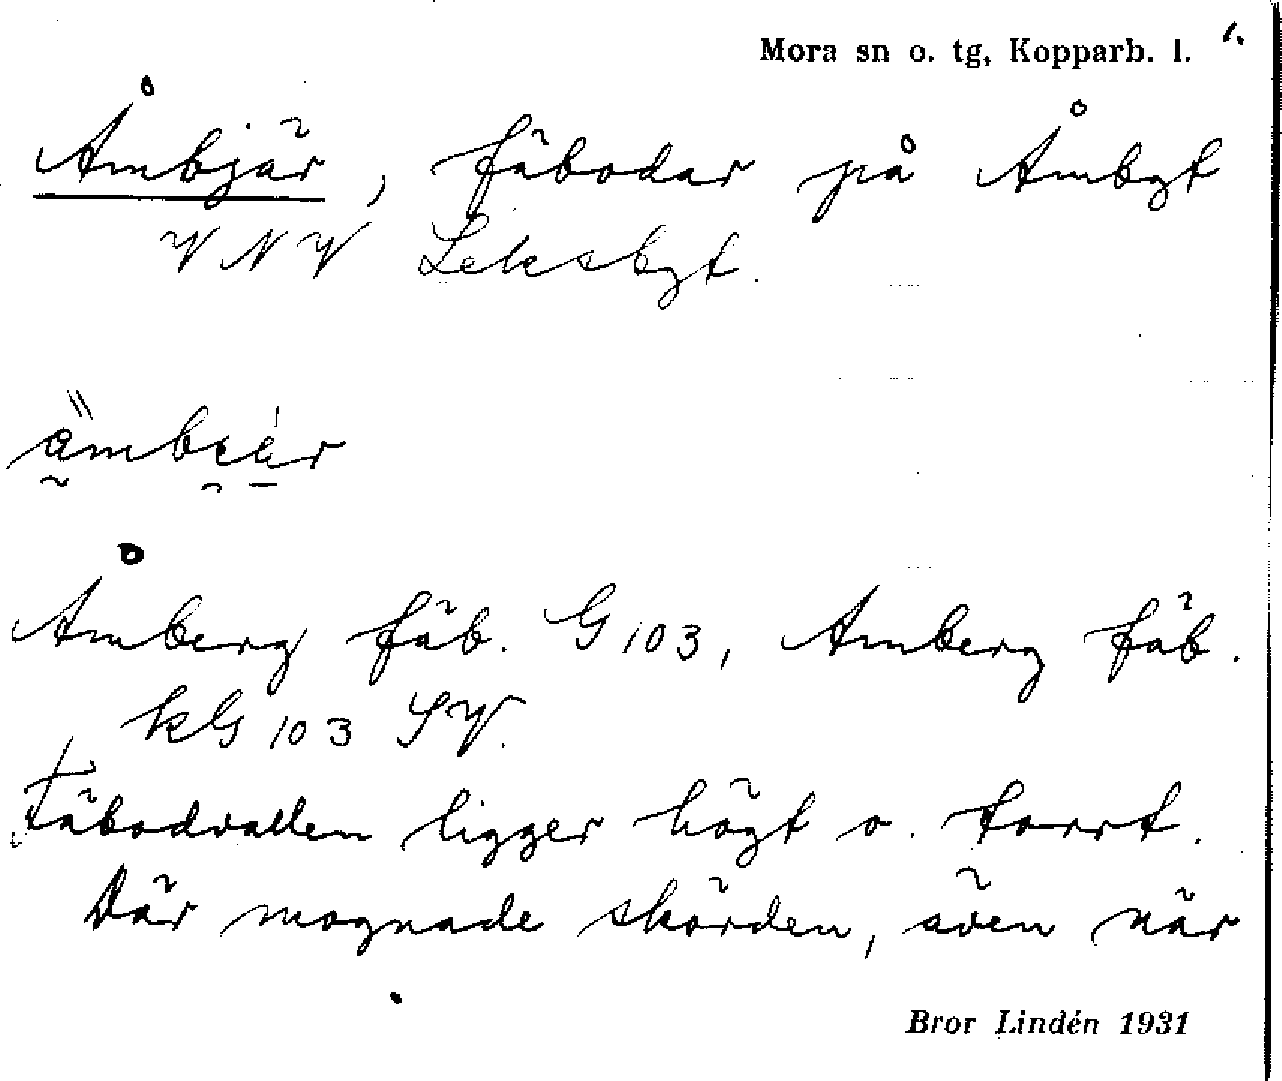 Mora sn o. tg, Kopparb. l. 1.
Åmbjär, fäbodar på Åmbgt
VNV Leksbgt.
ämbɪèr
Åmberg fäb. G 103, Amberg fäb.
kG 103 SV.
Fäbodvallen ligger högt o. torrt.
Där mognade skörden, även när
Bror Lindén 1931